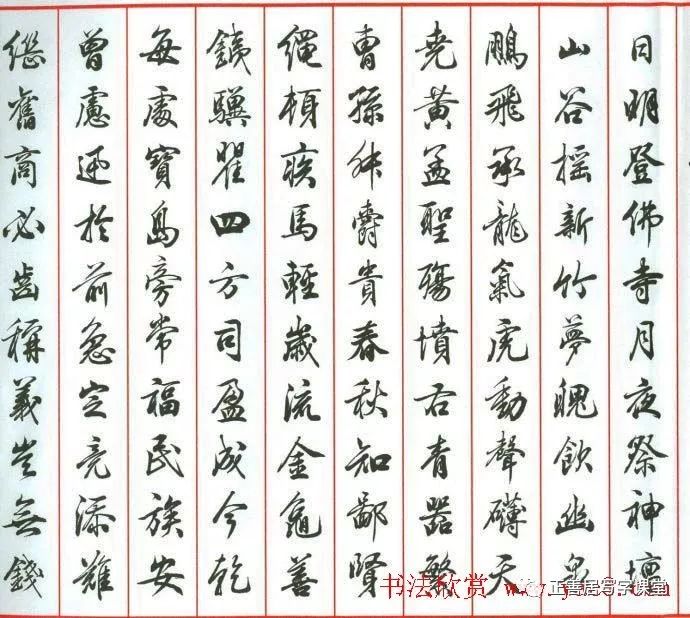 日明登佛寺月夜祭神壇
山谷摇新竹夢魄飲幽泉
鵬飛承龍氣虎動聲礴天
尭黄孟聖殤墳右青器繁
曹孫舛爵貴春秋知鄙賢
繩頓疾馬輕歲流金龜善
鐵驥瞿四方司盈成今乾
每處寶島旁常福民族安
曾慮迺於前急定亮添難
繼舊商必齒稱義豈無錢
书法欣赏
正善居写字课堂